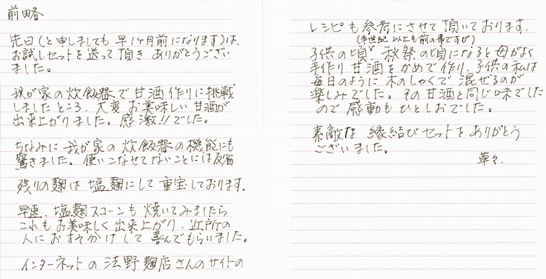 前略
先日(と申しましても早1ヶ月前になります)は、
お試しセットを送って頂きありがとうござい
ました。
我が家の炊飯器で甘酒作りに挑戦
しましたところ、大変お美味しい甘酒が
出来上がりました。感激!!でした。
ちなみに我が家の炊飯器の機能にも
驚きました。使いこなせてないことには反省
残りの麹は塩麹にして重宝しております。
早速、塩麹スコーンも焼いてみましたら
これもお美味しく出来上がり、近所の
人におすそわけして喜んでもらいました。
インターネットの法野麹店さんのサイトの
レシピも参考にさせて頂いております。
(半世紀以上も前の事ですが)
子供の頃、秋祭の頃になると母がよく
手作り甘酒をかめで作り、子供の私は
毎日のように木のしゃくで混ぜるのが
楽しみでした。その甘酒と同じ味でした
ので感動もひとしおでした。
素敵な縁結びセットをありがとう
ございました。
草々